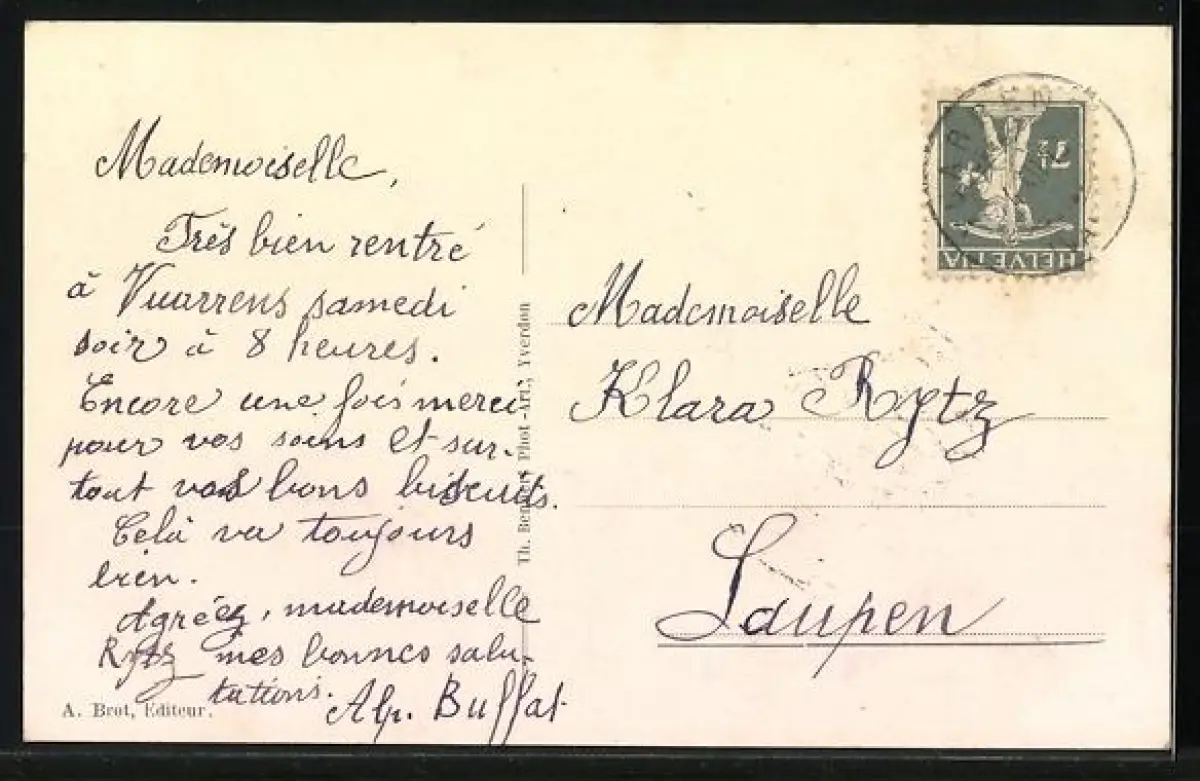 Mademoiselle,
Très bien rentré
à Vuarrens samedi
soir à 8 heures.
Encore une fois merci
pour vos soins et sur-
tout vos bons biscuits.
Celà va toujours
bien.
Agréez, mademoiselle
Rytz mes bonnes salu-
tations.
Alp. Buffat
A. Brot, Editeur.
Phot.-Art., Yverdon
7½
HELVETIA
Mademoiselle
Klara Rytz
Laupen